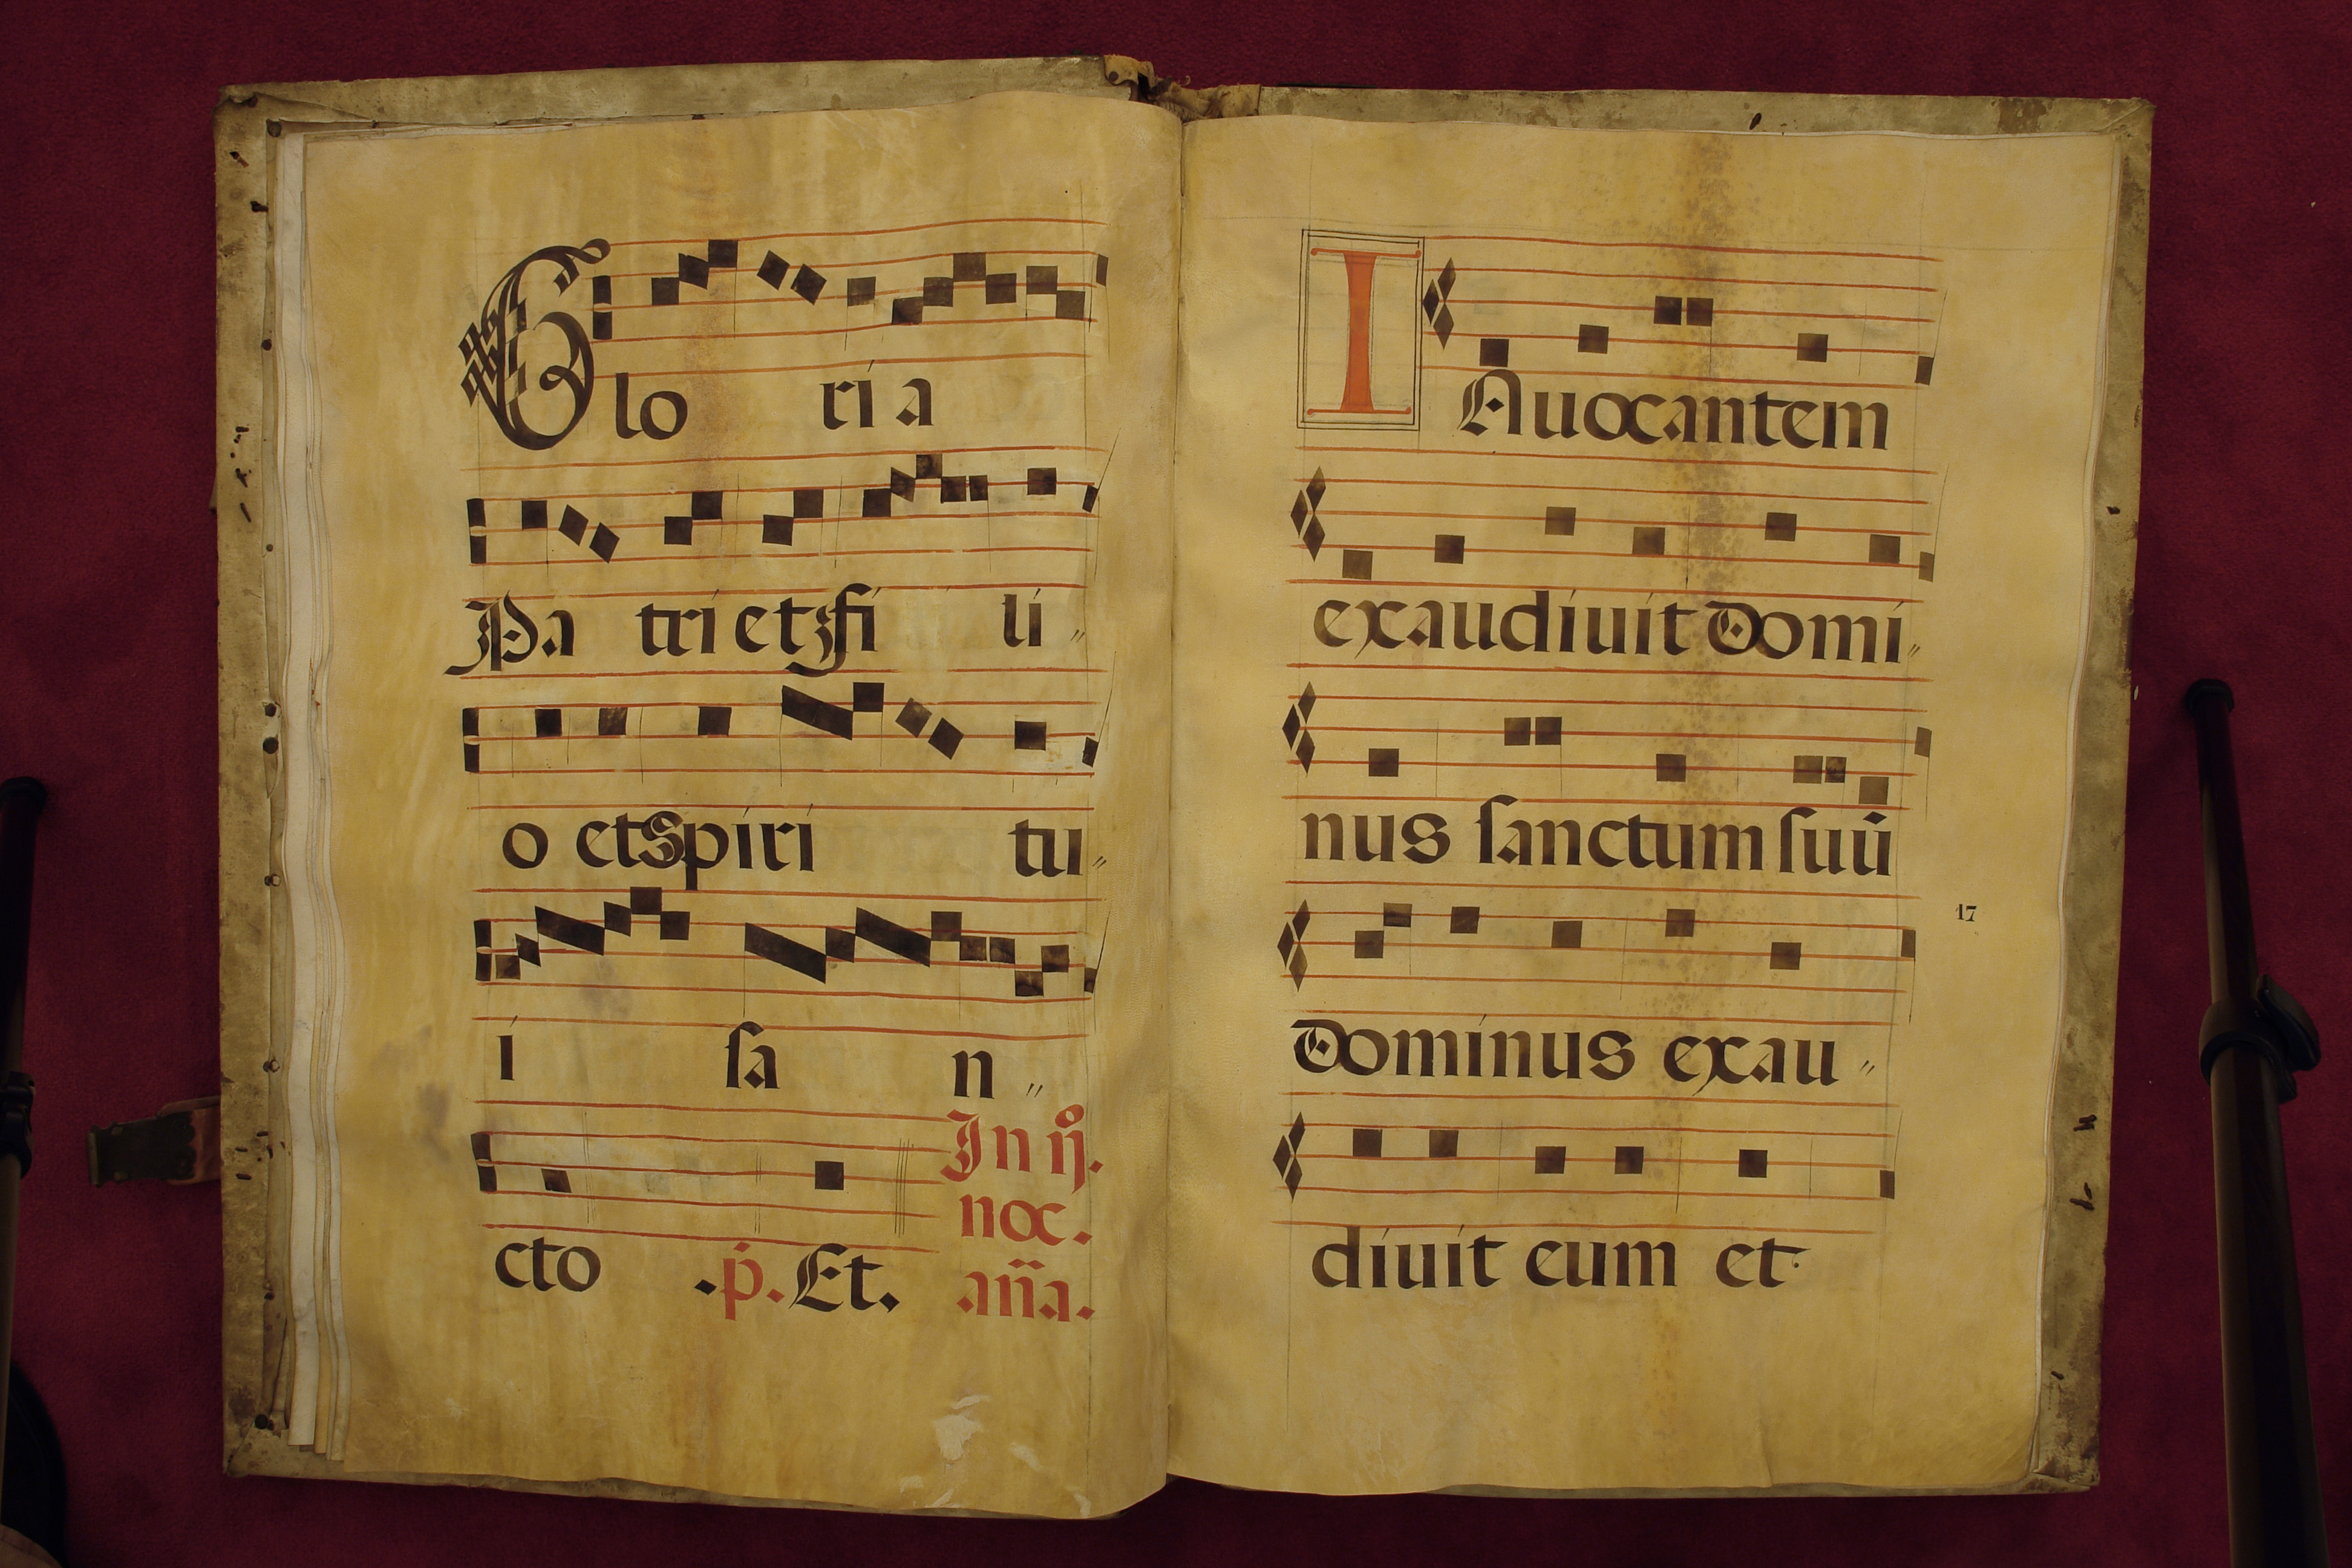 Glo ri a
Pa tri et fi li„
o et Spiri tu„
i ſa n„
In ij.
noc.
cto .p̍. Et. an̈a.
I Auocantem
exaudiuit Domi„
nus ſanctum ſuū
17
Dominus exau„
diuit eum et